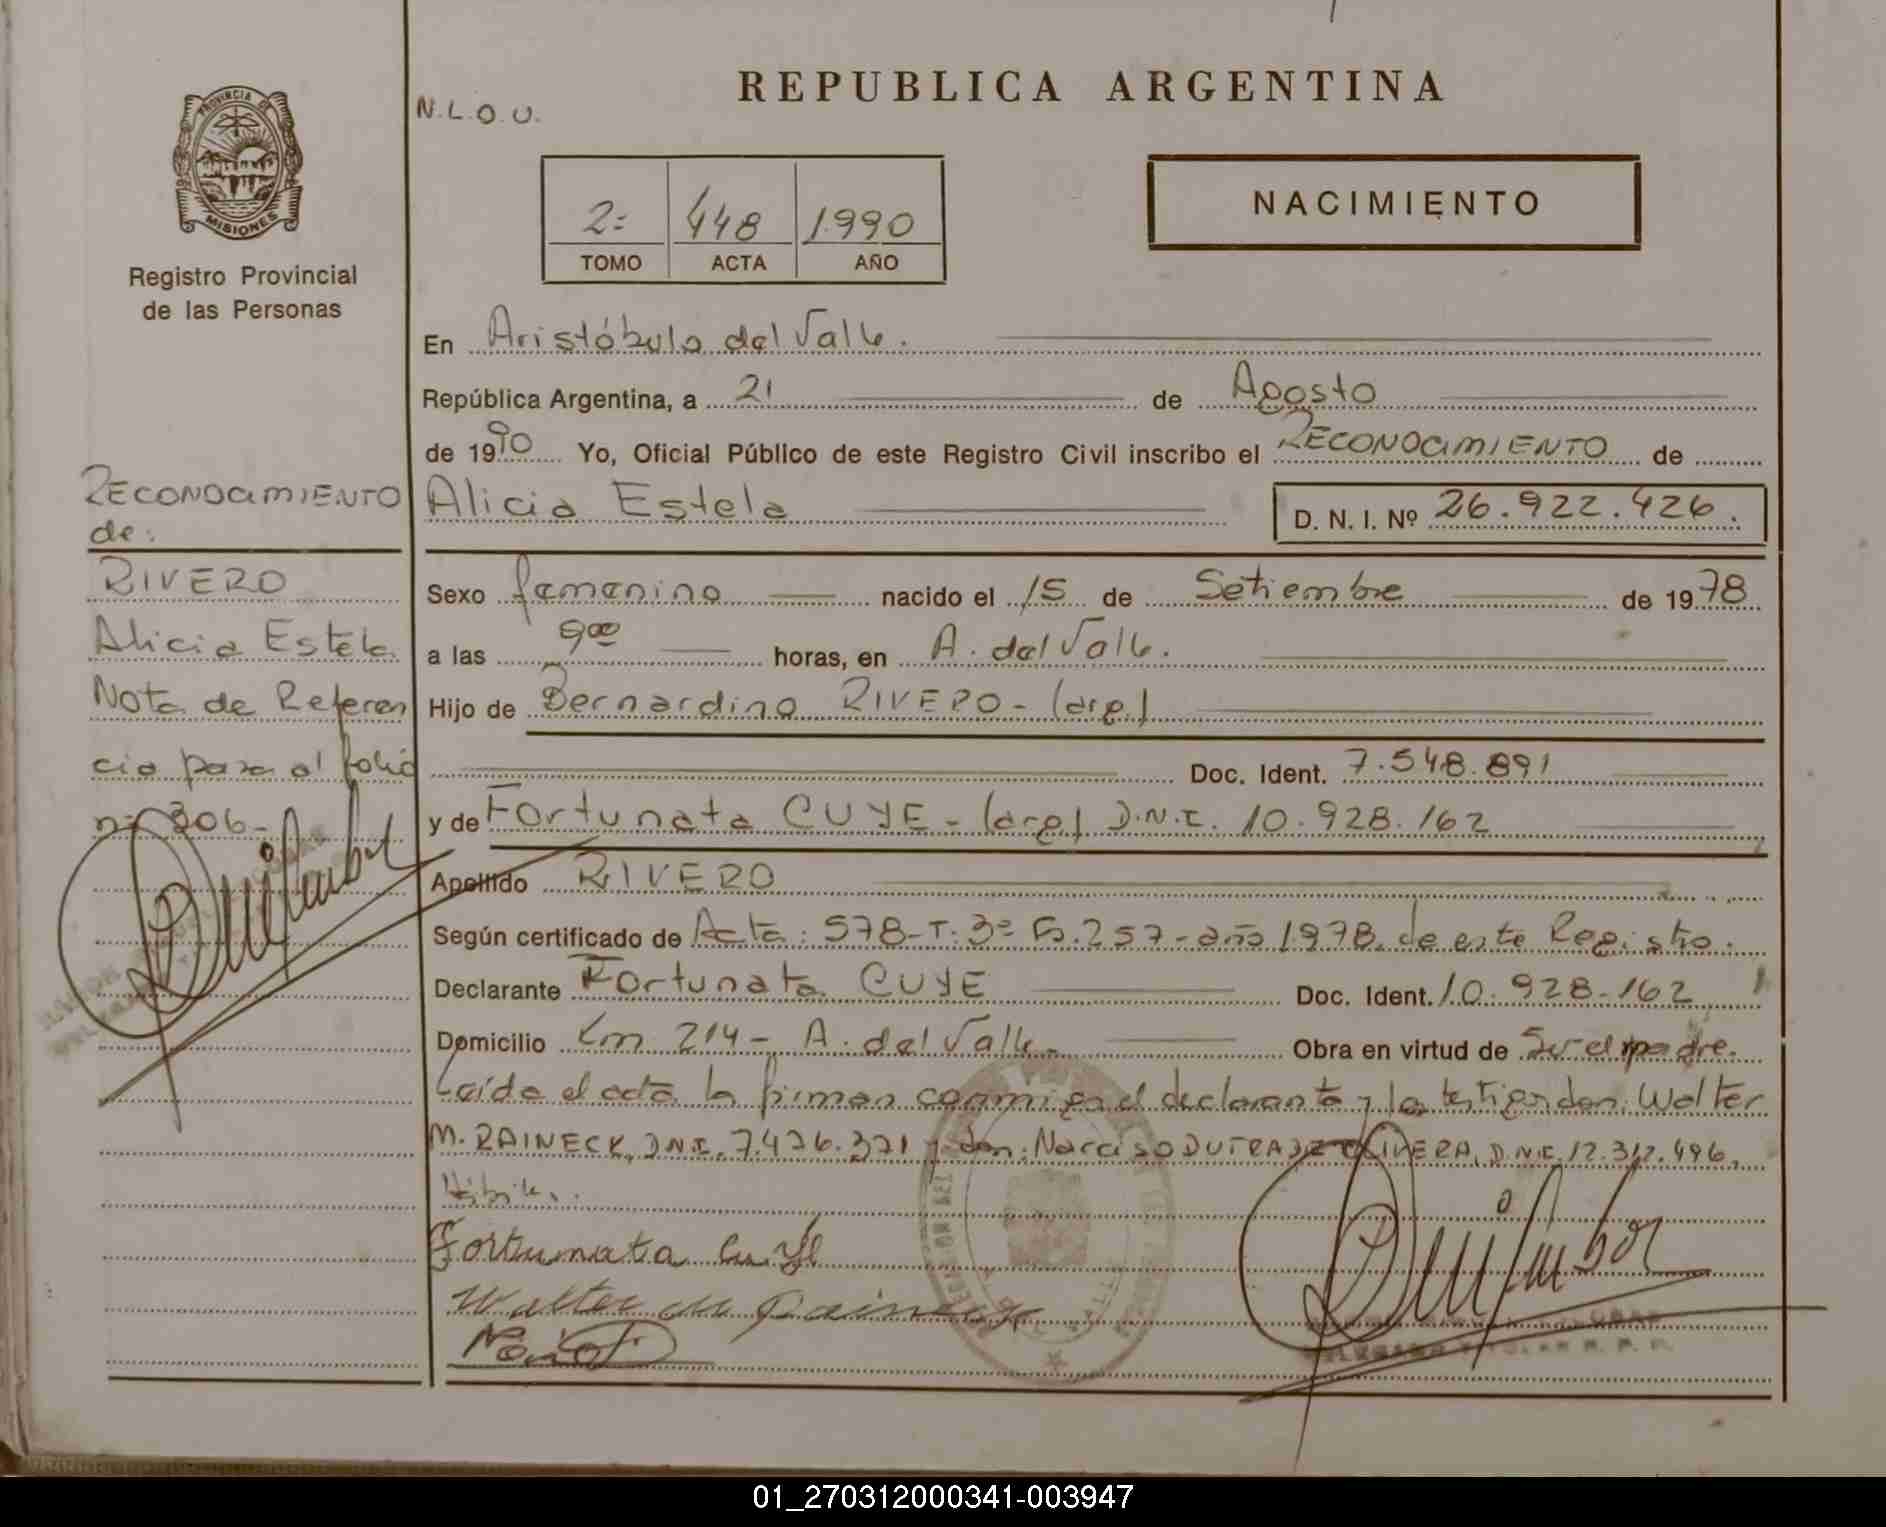 REPUBLICA ARGENTINA
N.L.O.U.
PROVINCIA DE
MISIONES
Registro Provincial
de las Personas
2= 448 1990
TOMO ACTA AÑO
NACIMIENTO
En Aristóbulo del Valle.
República Argentina, a 21 de Agosto
de 1990 Yo, Oficial Público de este Registro Civil inscribo el RECONOCIMIENTO de
Alicia Estela D. N. I. Nº 26.922.426.
Sexo femenino nacido el 15 de Setiembre de 1978
a las 9 00 horas, en A. del Valle.
Hijo de Bernardino RIVERO - (arg.)
Doc. Ident. 7.548.891
y de Fortunata CUYE - (arg) D.N.I. 10.928.162
Apellido RIVERO
Según certificado de Acta: 578-T: 3= Fo. 257 - año 1978, de este Registro.
Declarante Fortunata CUYE Doc. Ident. 10.928.162
Domicilio Km 214 - A. del Valle - Obra en virtud de Ser el madre.
Leída el acta la firman conmigo el declarante y los testigos don: Walter
M. RAINECK, D.N.I. 7.476.371 y don: Narciso DUTRA DE OLIVERA, D.N.I. 12.312.496.
Fortunata Cuye
Walter M Raineck
RECONOCIMIENTO
de:
RIVERO
Alicia Estela
Nota de Referen
cia para al folio
n= 306-
01_270312000341-003947